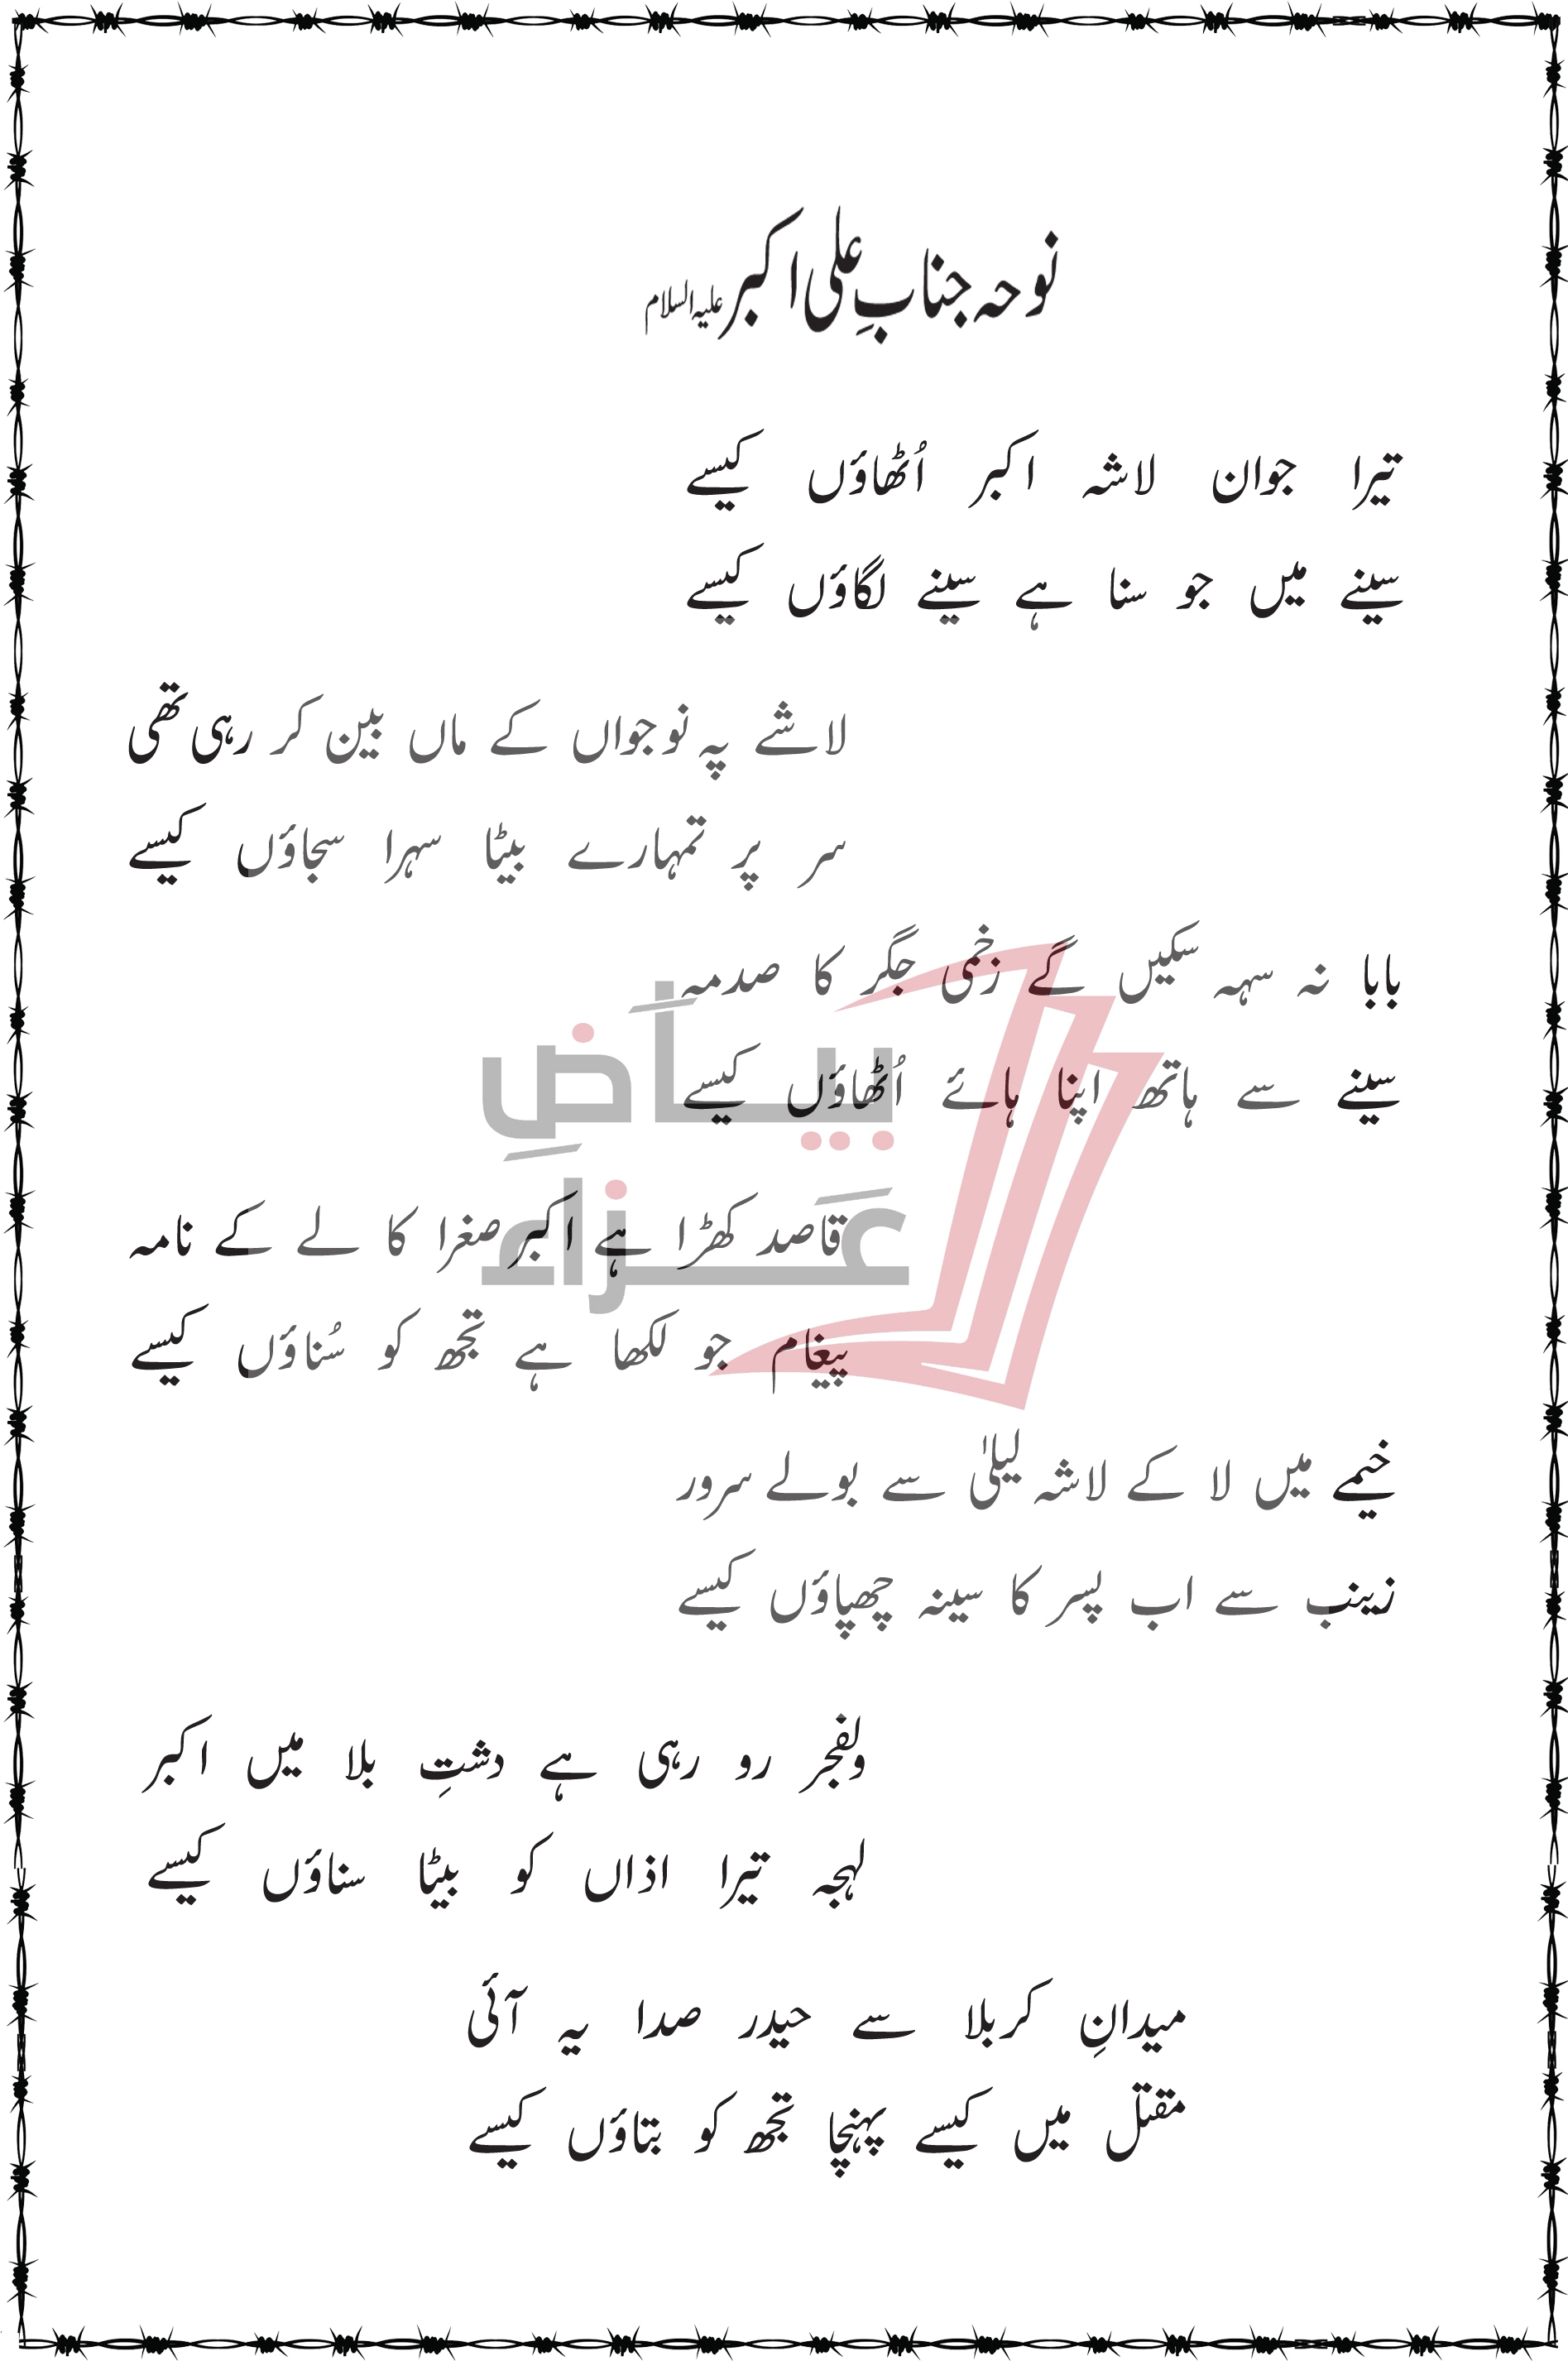 نوحہ جنابِ علی اکبر علیہ السلام
تیرا جوان لاشہ اکبر اُٹھاؤں کیسے
سینے میں جو سنا ہے سینے لگاؤں کیسے
لاشے پہ نوجواں کے ماں بین کر رہی تھی
سر پر تمہارے بیٹا سہرا سجاؤں کیسے
بابا نہ سہہ سکیں گے زخمی جگر کا صدمہ
سینے سے ہاتھ اپنا ہائے اُٹھاؤں کیسے
بیاَضِ
عَزاء
قاصد کھڑا ہے اکبر صغرا کا لے کے نامہ
پیغام جو لکھا ہے تجھ کو سُناؤں کیسے
خیمے میں لا کے لاشہ لیلیٰ سے بولے سرور
زینب سے اب پسر کا سینہ چھپاؤں کیسے
ولفجر رو رہی ہے دشتِ بلا میں اکبر
لہجہ تیرا اذاں کو بیٹا سناؤں کیسے
میدانِ کربلا سے حیدر صدا یہ آئی
مقتل میں کیسے پہنچا تجھ کو بتاؤں کیسے